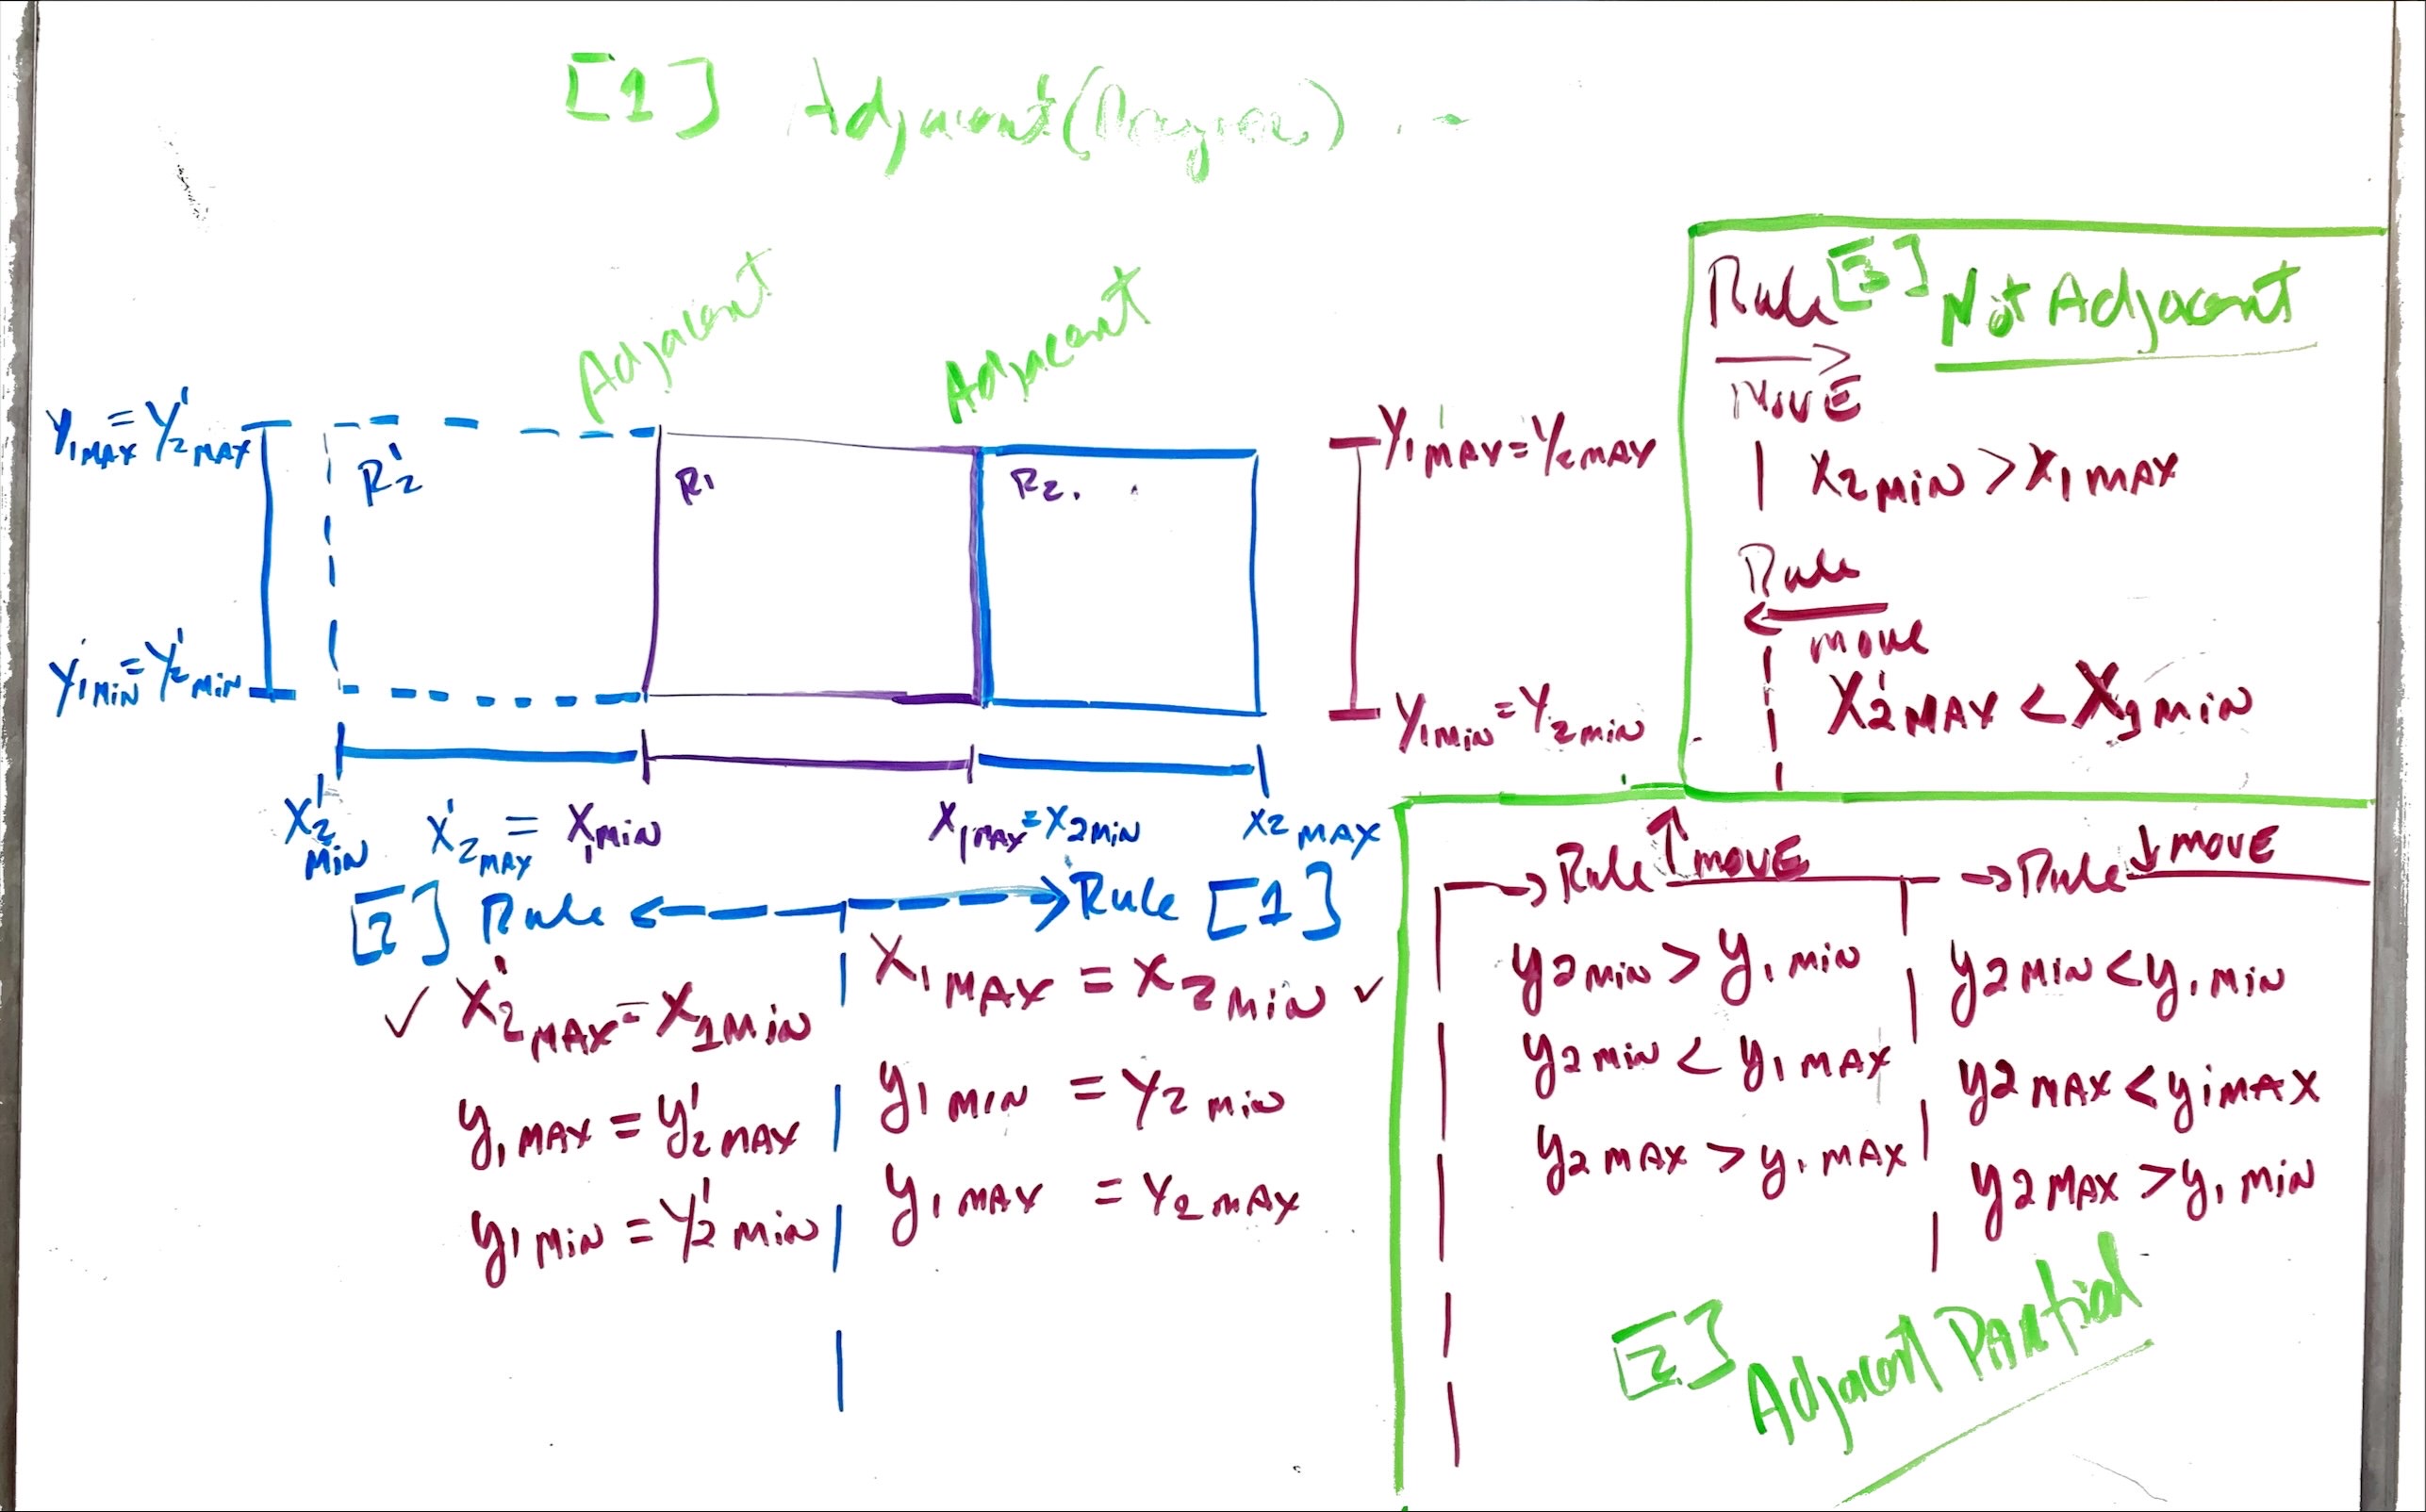 [1] Adjacent
Adjacent
Adjacent
Y1MAX = Y'2MAX
R'2
R1
R2.
Y1MAX = Y2MAX
Y1MIN = Y'2MIN
Y1MIN = Y2MIN
X'2 MIN
X'2MAX = X1MIN
X1MAX = X2MIN
X2 MAX
[2] Rule
Rule [1]
✓ X'2MAX = X1MIN
Y1MAX = Y'2MAX
Y1MIN = Y'2MIN
X1MAX = X2MIN ✓
Y1MIN = Y2MIN
Y1MAX = Y2MAX
Rule [3] Not Adjacent
MOVE
X2MIN > X1MAX
Rule
move
X'2MAX < X1MIN
→ Rule ↑ MOVE
Y2MIN > Y1MIN
Y2MIN < Y1MAX
Y2MAX > Y1MAX
→ Rule ↓ MOVE
Y2MIN < Y1MIN
Y2MAX < Y1MAX
Y2MAX > Y1MIN
[2] Adjacent Partial